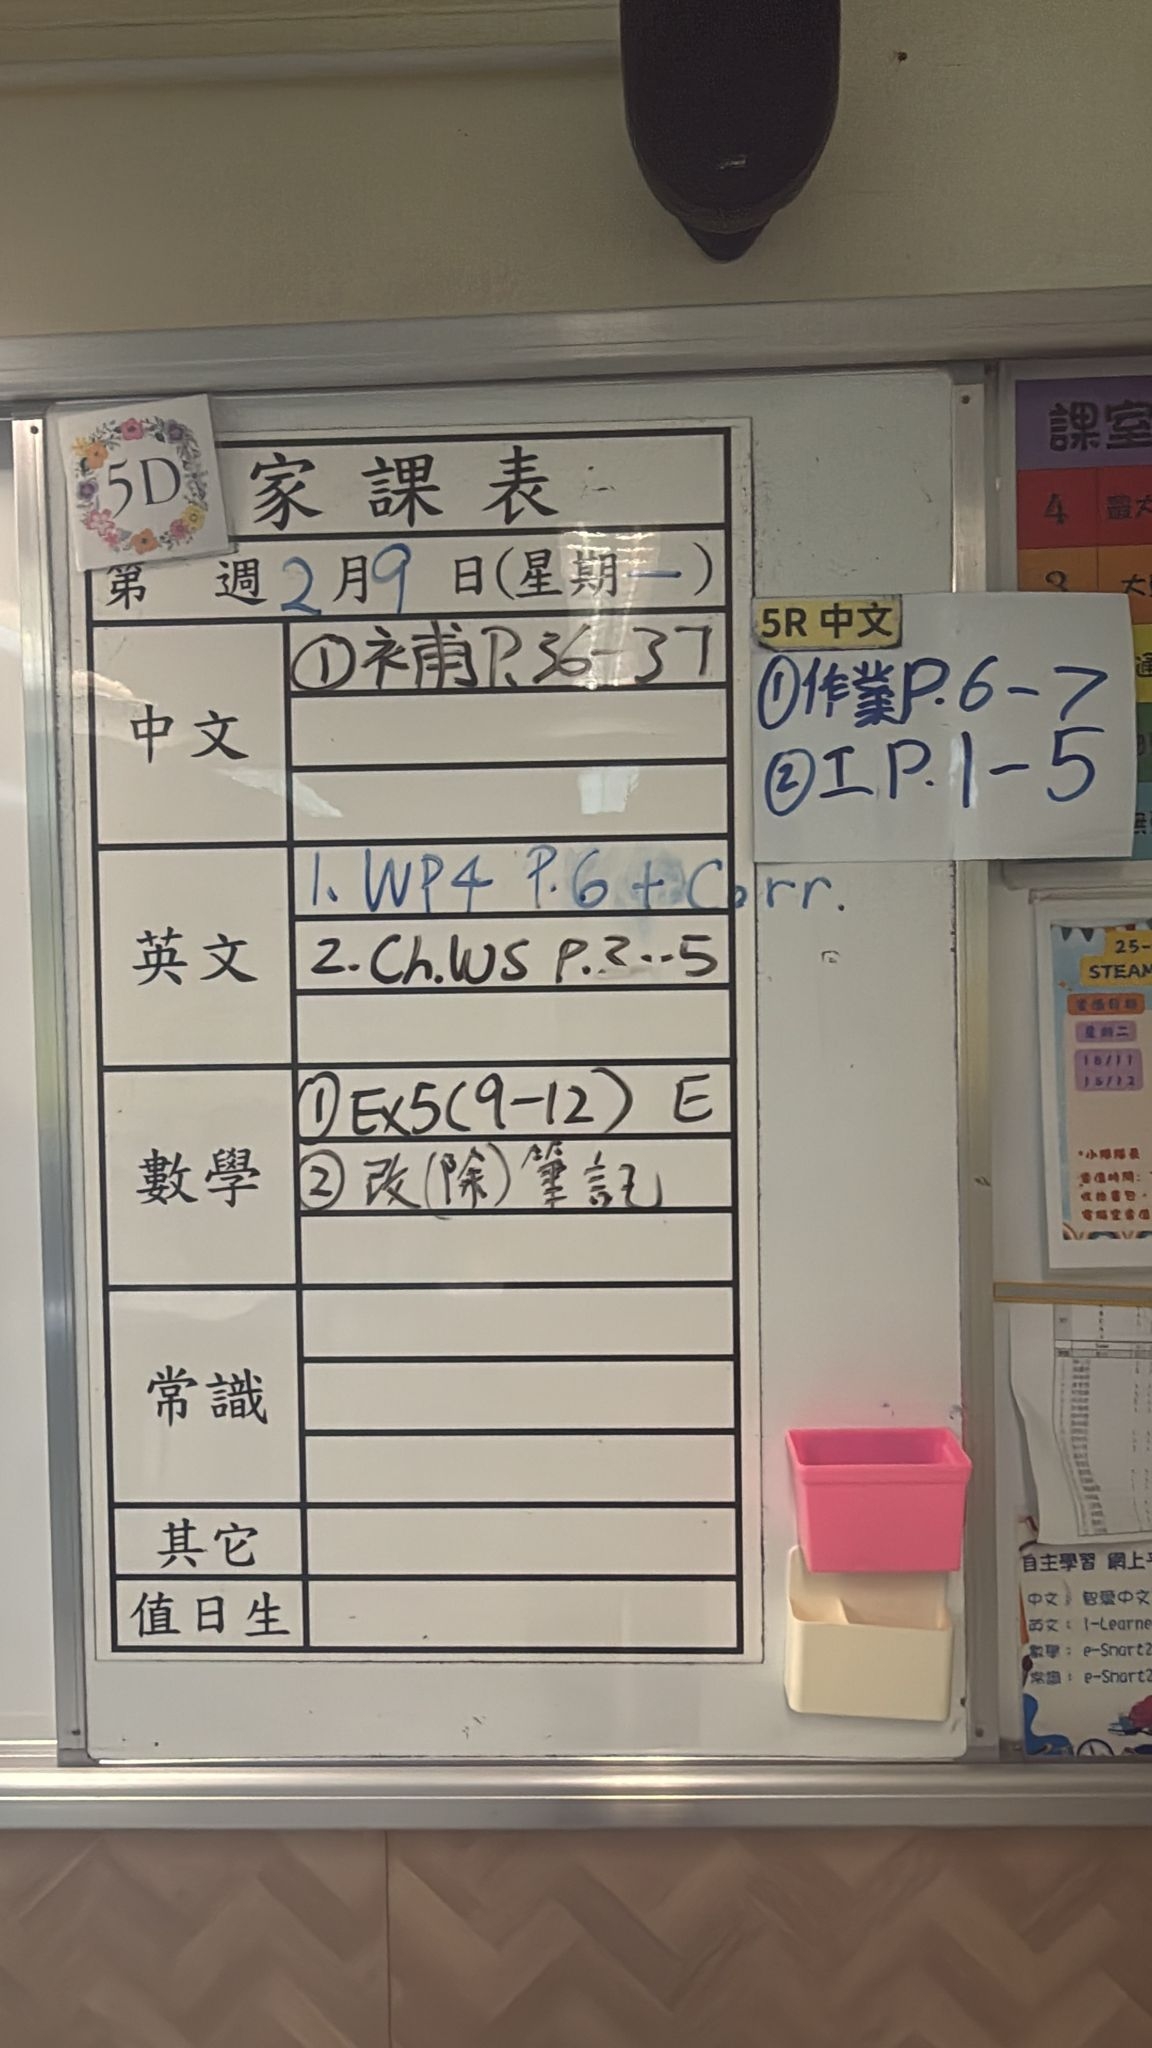 5D
家課表
第 週 2月9日(星期一)
中文
①補P.36-37
英文
1. WP4 P.6 + Corr.
2. Ch.WS P.3--5
數學
①Ex5(9-12) E
②改(除)筆記
常識
其它
值日生
5R 中文
①作業P.6-7
②工P.1-5
課室
4
3
25-
STEAM
星期二
18/11
自主學習 網上
中文：
英文： i-Learne
數學： e-Smart
常識： e-Smart